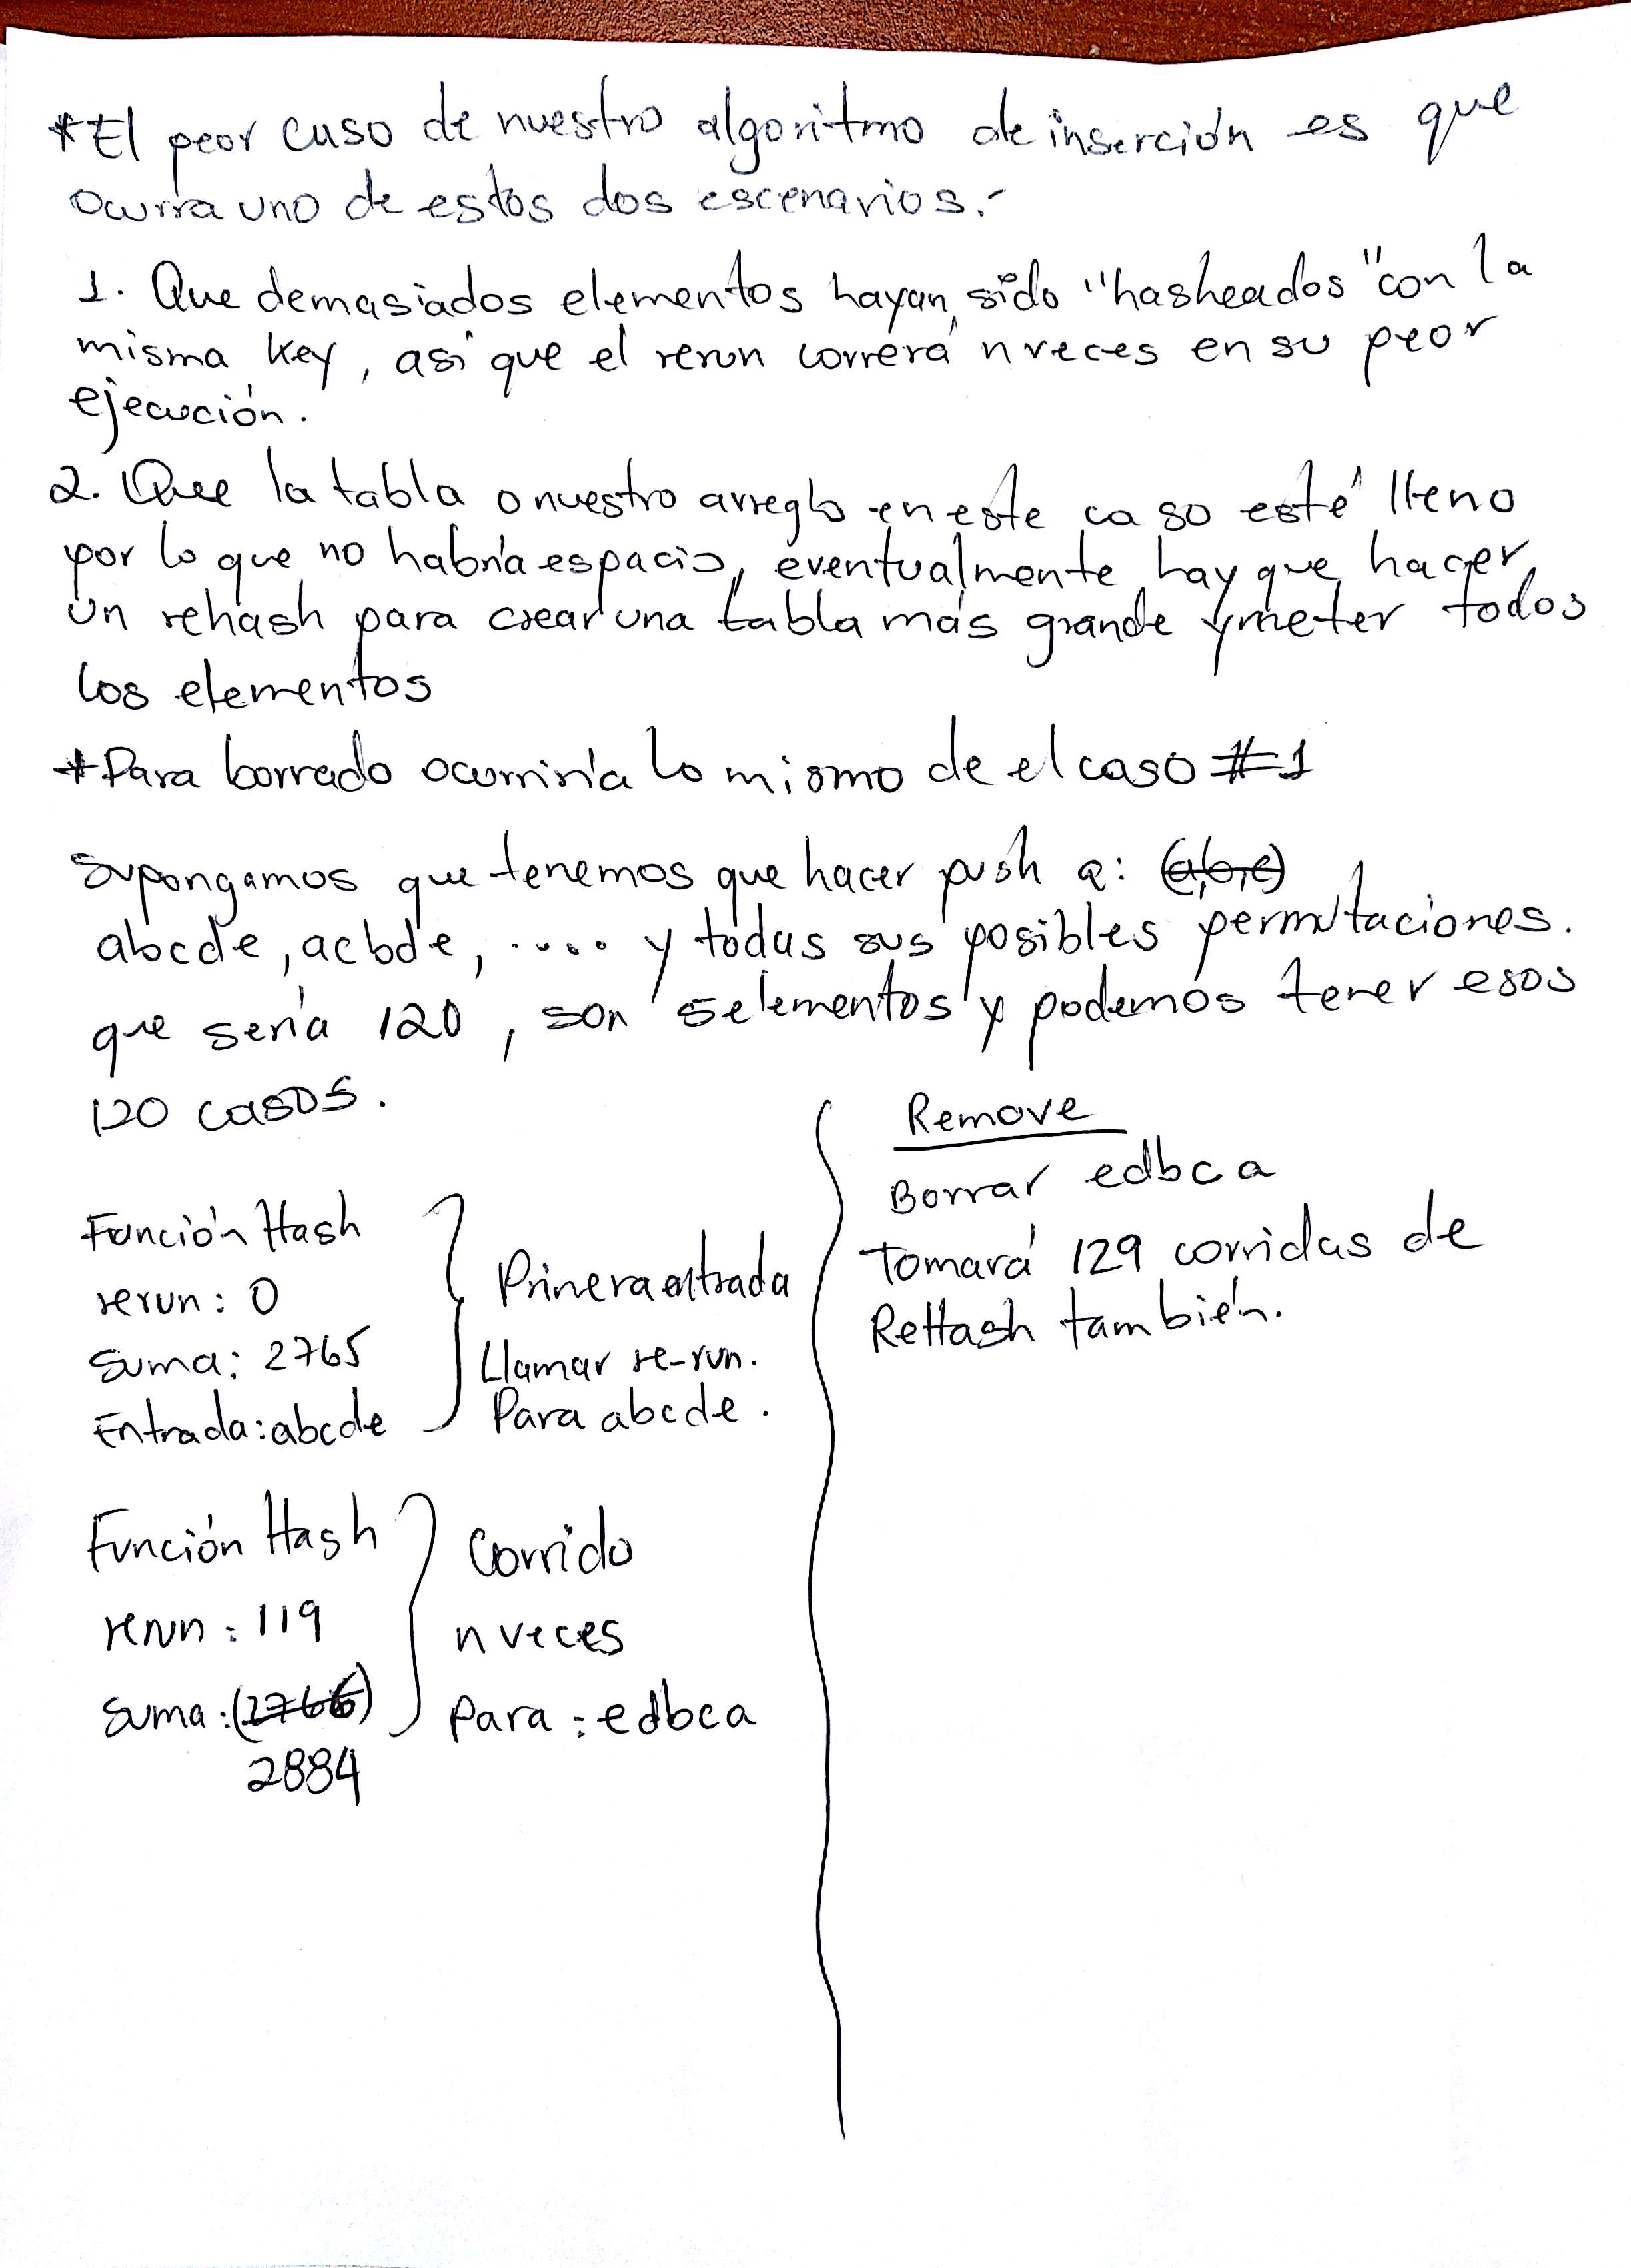 *El peor caso de nuestro algoritmo de inserción es que
ocurra uno de estos dos escenarios.-
1. Que demasiados elementos hayan sido "hasheados" con la
misma key, así que el rerun correrá n veces en su peor
ejecución.
2. Que la tabla o nuestro arreglo en este caso esté lleno
por lo que no habría espacio, eventualmente hay que hacer
un rehash para crear una tabla más grande y meter todos
los elementos
*Para borrado ocurriría lo mismo de el caso #1
Supongamos que tenemos que hacer push a: (a,b,c)
abcde, acbde, ..... y todas sus posibles permutaciones.
que sería 120, son 5 elementos y podemos tener esos
120 casos.
Función Hash
rerun: 0
Suma: 2765
Entrada: abcde
Primera entrada
Llamar re-run.
Para abcde.
Función Hash
rerun: 119
Suma: (2766)
2884
Corrido
n veces
Para: edbca
Remove
Borrar edbca
Tomará 129 corridas de
ReHash también.